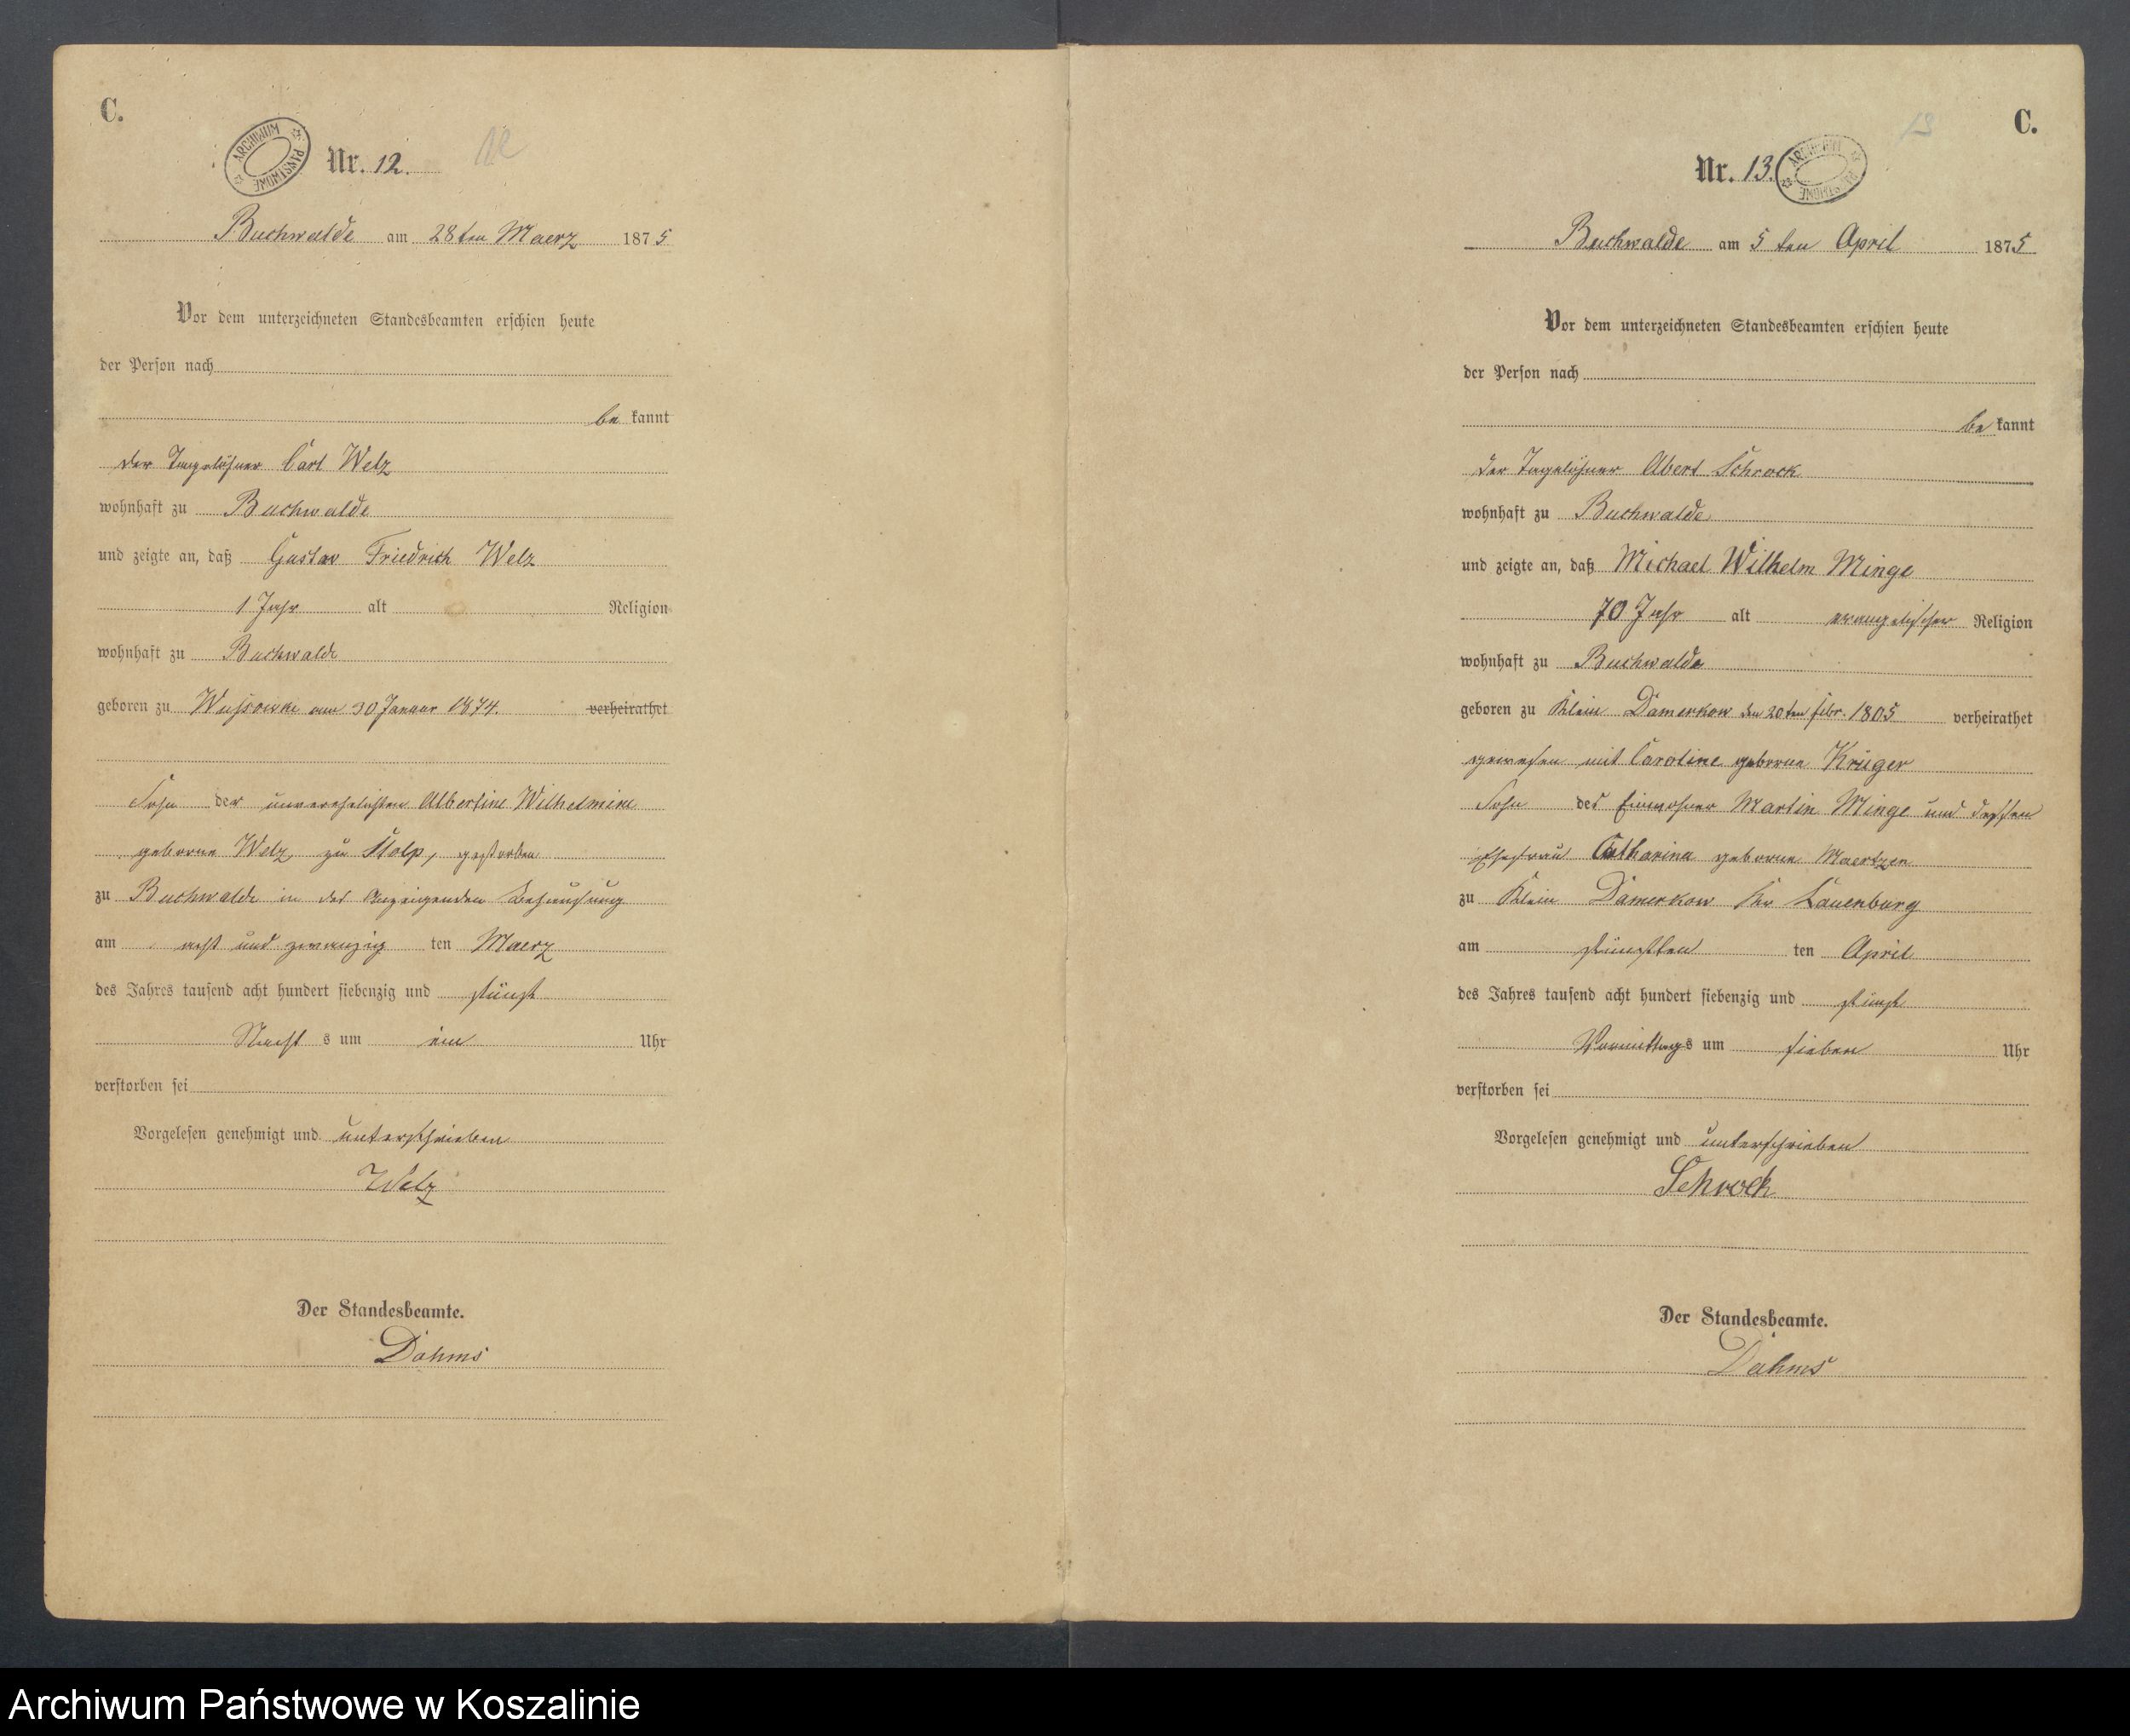 C.
ARCHIWUM PAŃSTWOWE
Nr. 12.
12
Buchwalde am 28ten Maerz 1875
Vor dem unterzeichneten Standesbeamten erschien heute
der Person nach
be kannt
der Tagelöhner Carl Welz
wohnhaft zu Buchwalde
und zeigte an, daß Gustav Friedrich Welz
1 Jahr alt Religion
wohnhaft zu Buchwalde
geboren zu am 30 Januar 1874. verheirathet
Sohn der unverehelichten Albertine Wilhelmine
geborne Welz zu Stolp, gestorben
zu Buchwalde in des Anzeigenden Behausung
am acht und zwanzig ten Maerz
des Jahres tausend acht hundert siebenzig und fünf
Nacht s um ein Uhr
verstorben sei
Vorgelesen genehmigt und unterschrieben
Welz
Der Standesbeamte.
Dahms
C.
13
Nr. 13.
ARCHIWUM PAŃSTWOWE
Buchwalde am 5 ten April 1875
Vor dem unterzeichneten Standesbeamten erschien heute
der Person nach
be kannt
der Tagelöhner Albert Schrock
wohnhaft zu Buchwalde
und zeigte an, daß Michael Wilhelm Minge
70 Jahr alt evangelischer Religion
wohnhaft zu Buchwalde
geboren zu Klein Damerkow den 20ten Febr. 1805 verheirathet
gewesen mit Caroline geborne Krüger
Sohn des Einwohner Martin Minge und dessen
Ehefrau Catharina geborne Maertzen
zu Klein Damerkow Kr Lauenburg
am fünften ten April
des Jahres tausend acht hundert siebenzig und fünf
Vormittags um sieben Uhr
verstorben sei
Vorgelesen genehmigt und unterschrieben
Schrock
Der Standesbeamte.
Dahms
Archiwum Państwowe w Koszalinie